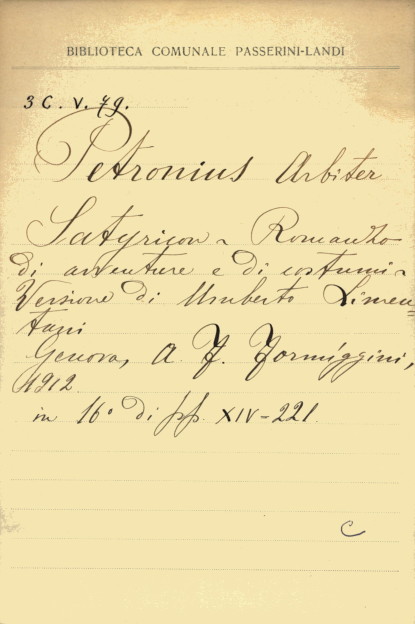 BIBLIOTECA COMUNALE PASSERINI-LANDI
3 C. V. 79.
Petronius Arbiter
Satyricon - Romanzo
di avventure e di costumi -
Versione di Umberto Limen=
tani
Genova, A. F. Formiggini,
1912.
in 16° di pp. XIV-221.
C